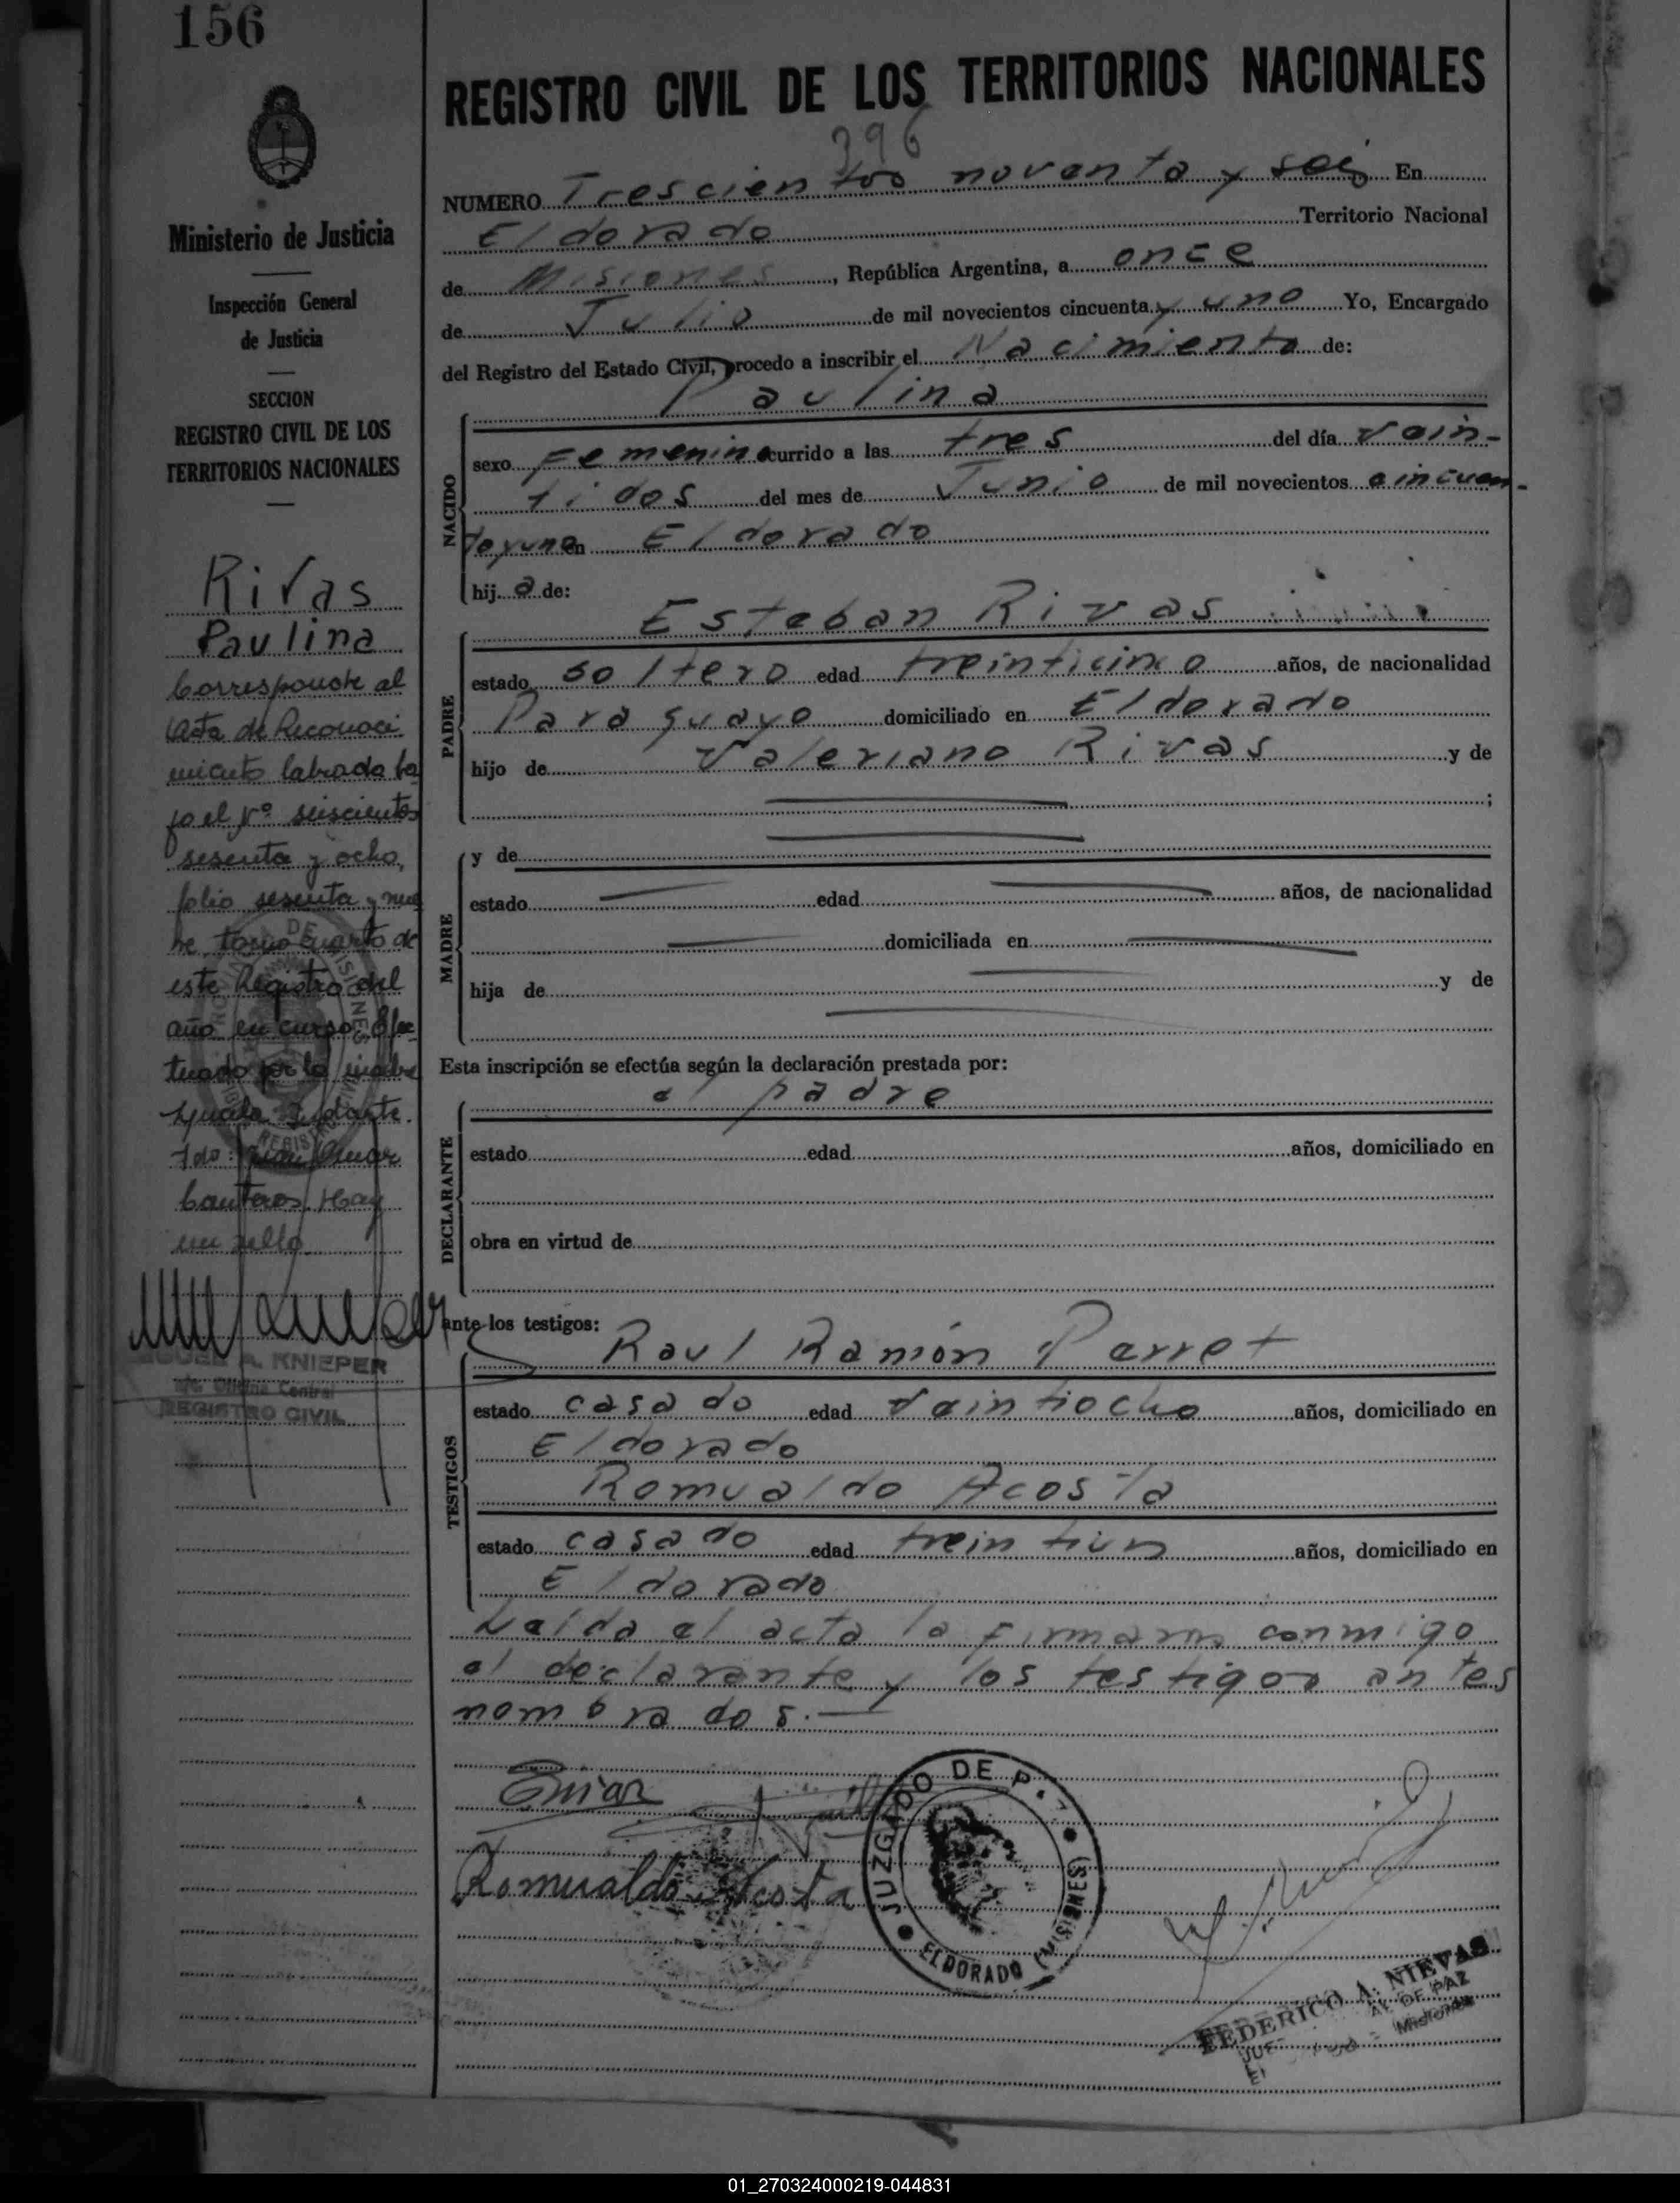 156
REGISTRO CIVIL DE LOS TERRITORIOS NACIONALES
396
NUMERO Trescientos noventa y seis En
Eldorado Territorio Nacional
de Misiones, República Argentina, a once
de Julio de mil novecientos cincuenta y uno Yo, Encargado
del Registro del Estado Civil, procedo a inscribir el Nacimiento de:
Paulina
NACIDO
sexo Femenin ocurrido a las tres del día vein-
tidos del mes de Junio de mil novecientos cincuen-
tayuno en Eldorado
hij a de:
Esteban Rivas
PADRE
estado soltero edad treinticinco años, de nacionalidad
Paraguayo domiciliado en Eldorado
hijo de Valeriano Rivas y de
;
MADRE
y de
estado edad años, de nacionalidad
domiciliada en
hija de y de
Esta inscripción se efectúa según la declaración prestada por:
el padre
DECLARANTE
estado edad años, domiciliado en
obra en virtud de
ante los testigos:
Raul Ramón Perret
TESTIGOS
estado casado edad veintiocho años, domiciliado en
Eldorado
Romualdo Acosta
estado casado edad treintiun años, domiciliado en
Eldorado
Leída el acta la firmaron conmigo
el declarante y los testigos antes
nombrados.—
Romualdo Acosta
JUZGADO DE P.
ELDORADO (MISIONES)
FEDERICO A. NIEVAS
DE PAZ
Misiones
Ministerio de Justicia
Inspección General
de Justicia
SECCION
REGISTRO CIVIL DE LOS
TERRITORIOS NACIONALES
Rivas
Paulina
Corresponde al
Acta de Reconoci
miento labrada ba
jo el Nº seiscientos
sesenta y ocho,
folio sesenta y nue
ve tomo cuarto de
este Registro del
año en curso. Efec
tuado por la madre
Canteros. Hay
un sello
A. KNIEPER
Oficina Central
REGISTRO CIVIL
01_270324000219-044831